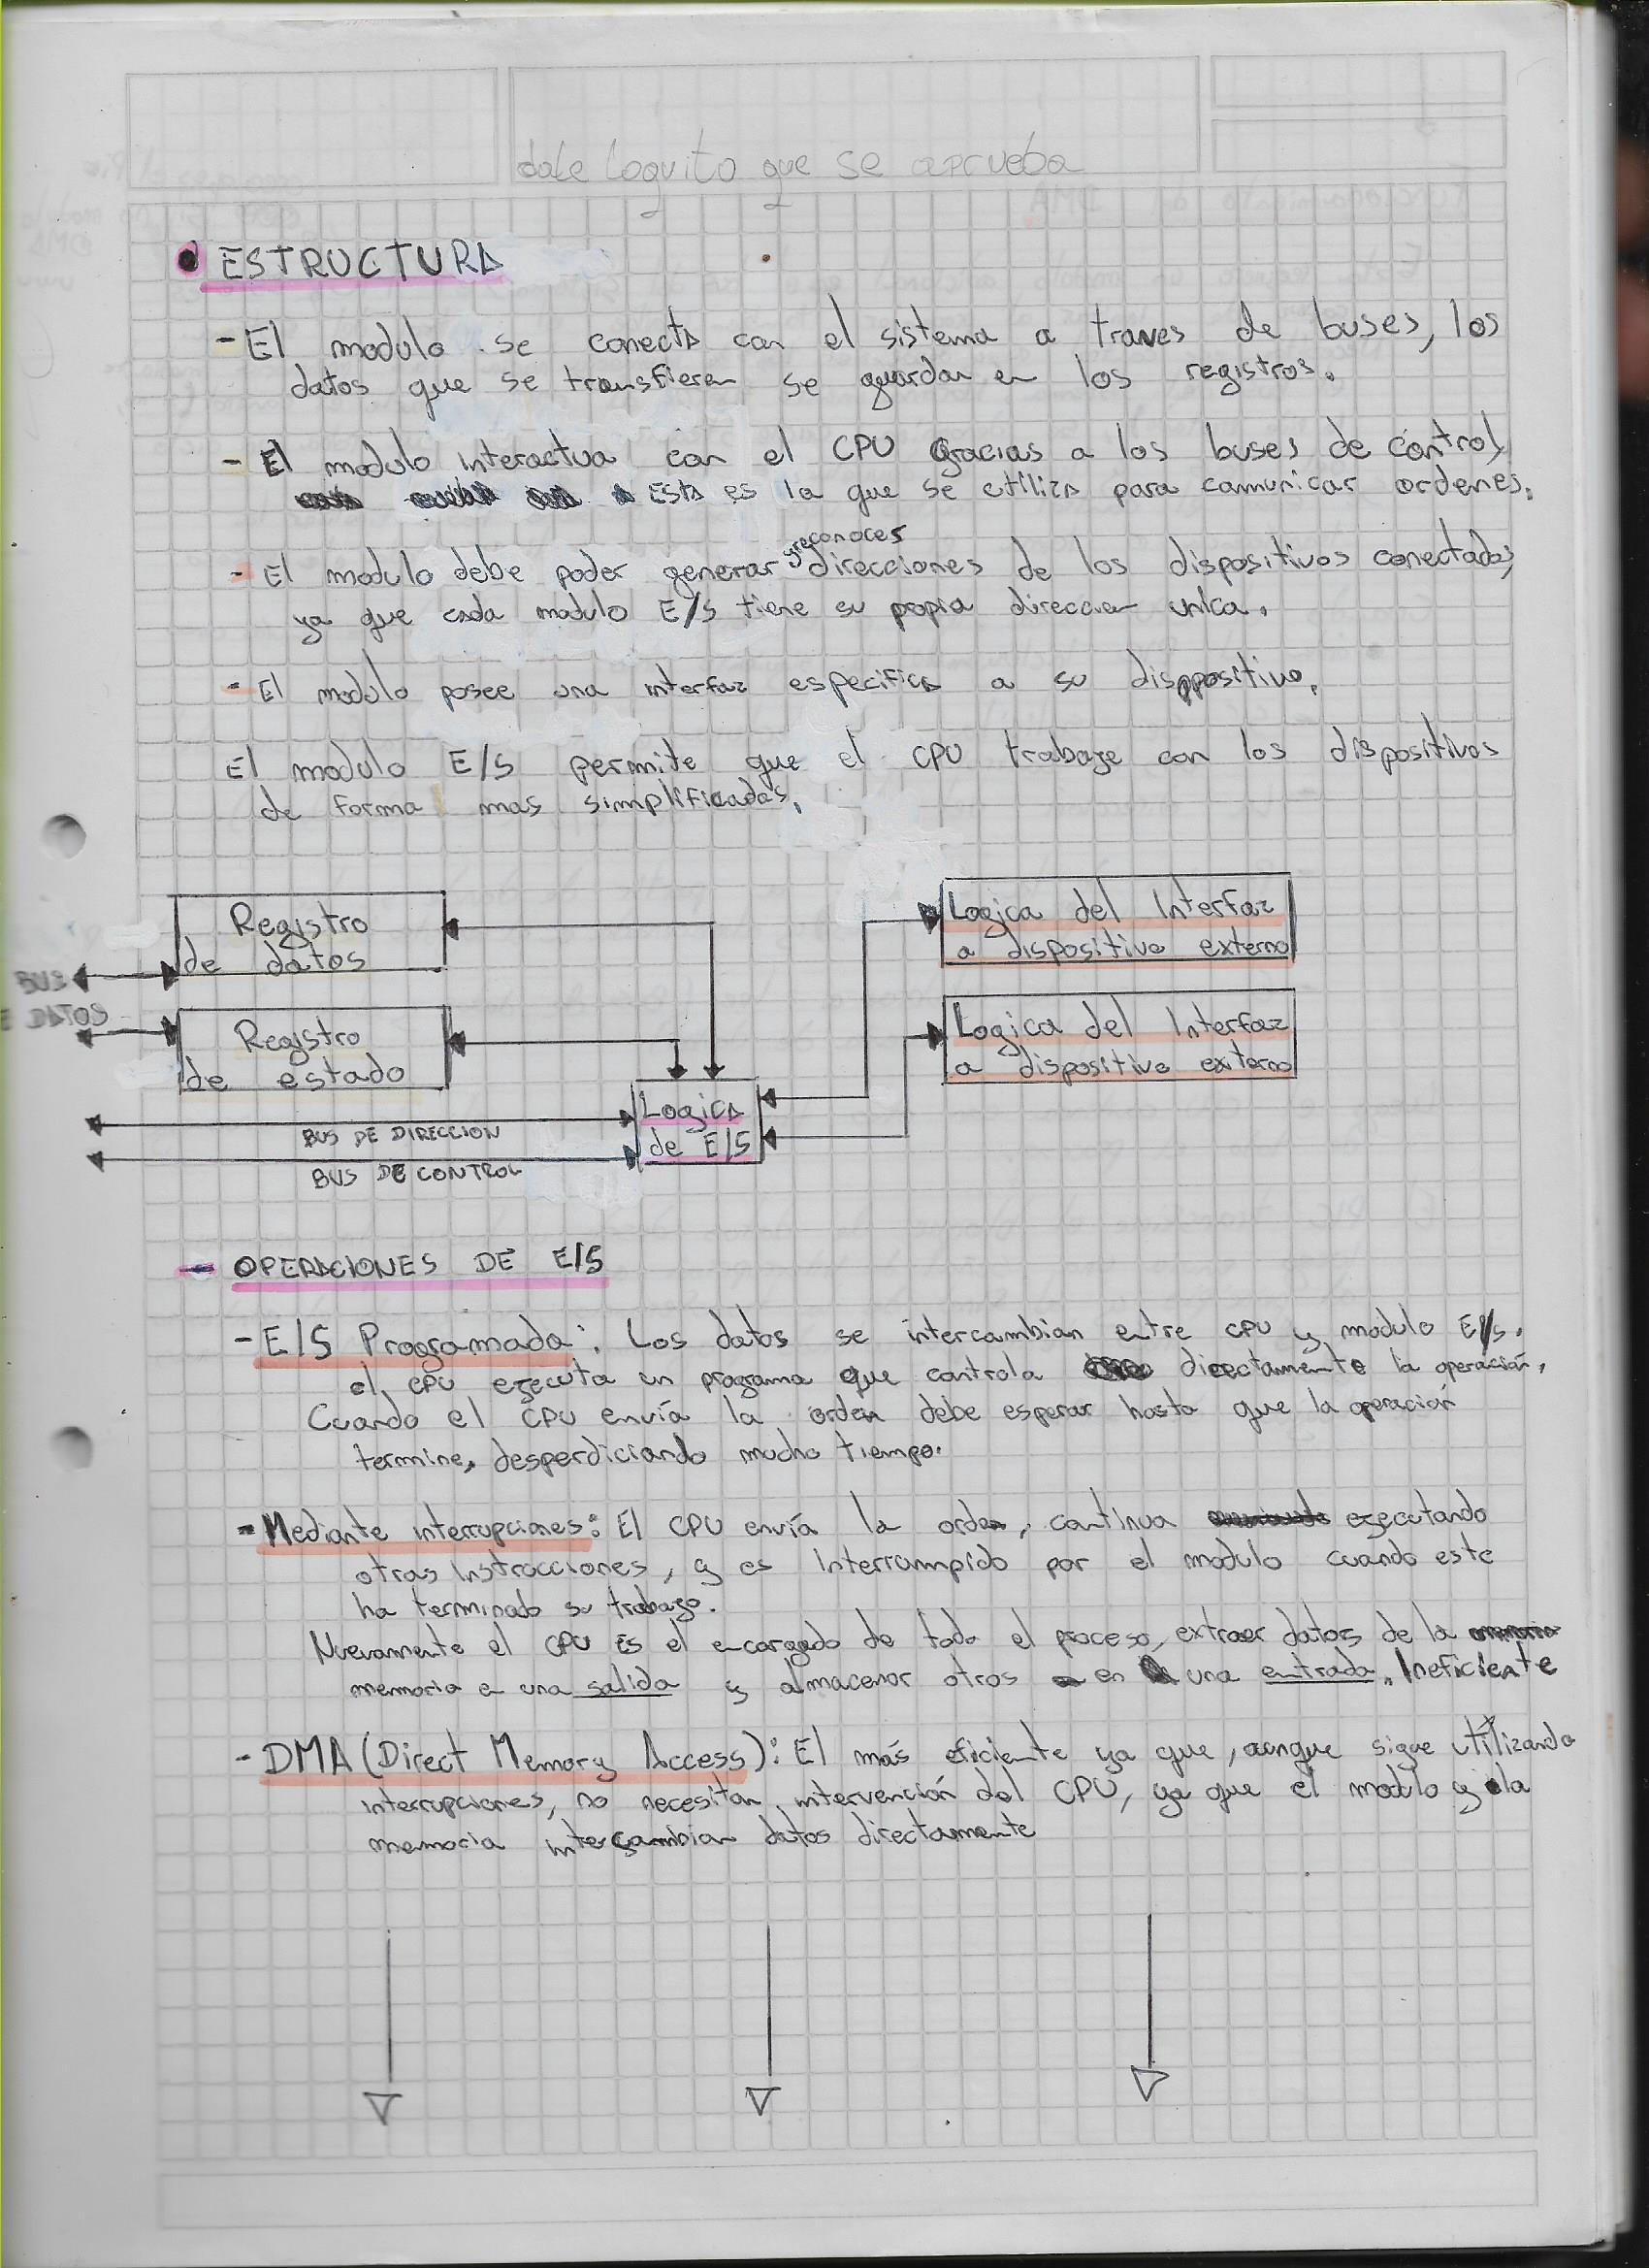 dale loquito que se aprueba
ESTRUCTURA
- El modulo se conecta con el sistema a traves de buses, los
datos que se transfieren se guardan en los registros.
- El modulo interactua con el CPU gracias a los buses de control,
Esta es la que se utiliza para comunicar ordenes.
y reconoces
- El modulo debe poder generar direcciones de los dispositivos conectados,
ya que cada modulo E/S tiene su propia direccion unica.
- El modulo posee una interfaz especifica a su disppositivo.
El modulo E/S permite que el CPU trabaje con los dispositivos
de forma mas simplificadas.
Registro
de datos
Logica del Interfaz
a dispositivo externo
BUS
E DATOS
Registro
de estado
Logica del Interfaz
a dispositivo externo
Logica
de E/S
BUS DE DIRECCION
BUS DE CONTROL
- OPERACIONES DE E/S
- E/S Programada: Los datos se intercambian entre CPU y modulo E/S.
el CPU ejecuta un programa que controla directamente la operación.
Cuando el CPU envía la orden debe esperar hasta que la operación
termine, desperdiciando mucho tiempo.
- Mediante interrupciones: El CPU envía la orden, continua ejecutando
otras instrucciones, y es interrumpido por el modulo cuando este
ha terminado su trabajo.
Nuevamente el CPU es el encargado de todo el proceso, extraer datos de la
memoria en una salida y almacenar otros en una entrada. Ineficiente
- DMA (Direct Memory Access): El más eficiente ya que, aunque sigue utilizando
interrupciones, no necesitan intervención del CPU, ya que el modulo y la
memoria intercambian datos directamente